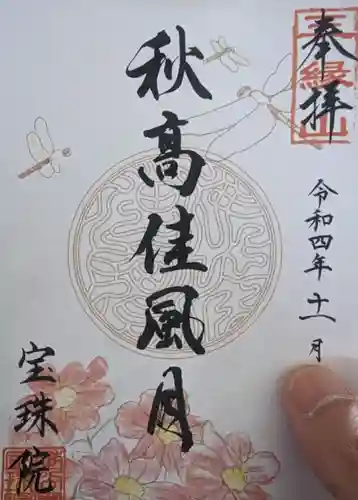 奉拝
令和四年十一月
秋高佳風月
宝珠院